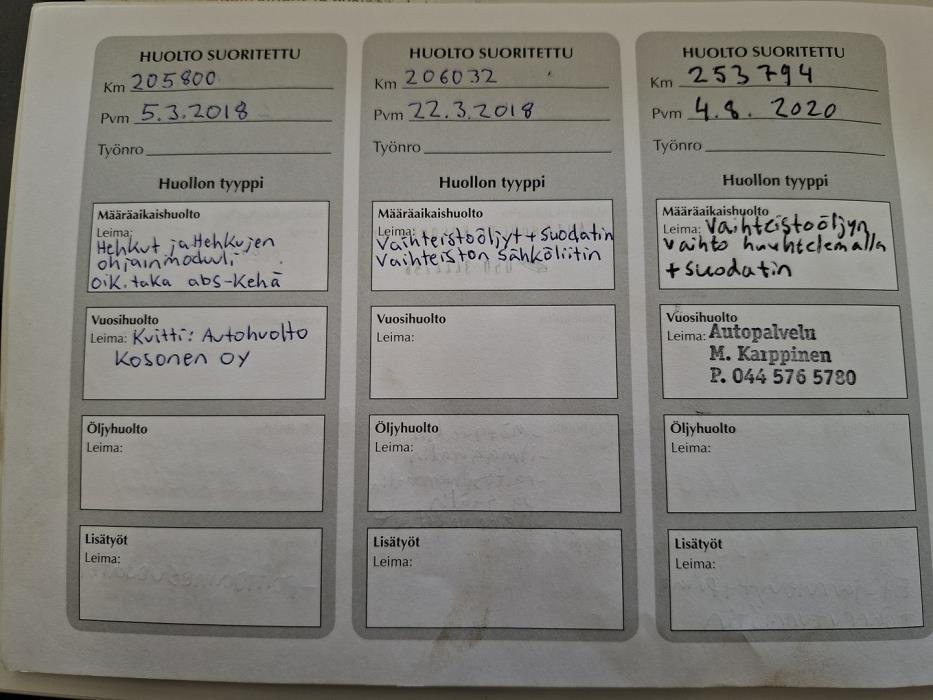 HUOLTO SUORITETTU
Km 205800
Pvm 5.3.2018
Työnro
Huollon tyyppi
Määräaikaishuolto
Leima:
Hehkut ja Hehkujen
ohjainmoduli
oik. taka abs-kehä
Vuosihuolto
Leima: Kvitti: Autohuolto
Kosonen OY
Öljyhuolto
Leima:
Lisätyöt
Leima:
HUOLTO SUORITETTU
Km 206032
Pvm 22.3.2018
Työnro
Huollon tyyppi
Määräaikaishuolto
Leima:
Vaihteistoöljyt + suodatin
Vaihteiston sähköliitin
Vuosihuolto
Leima:
Öljyhuolto
Leima:
Lisätyöt
Leima:
HUOLTO SUORITETTU
Km 253794
Pvm 4.8. 2020
Työnro
Huollon tyyppi
Määräaikaishuolto
Leima: Vaihteistoöljyn
vaihto huuhtelemalla
+ suodatin
Vuosihuolto
Leima: Autopalvelu
M. Karppinen
P. 044 576 5780
Öljyhuolto
Leima:
Lisätyöt
Leima: